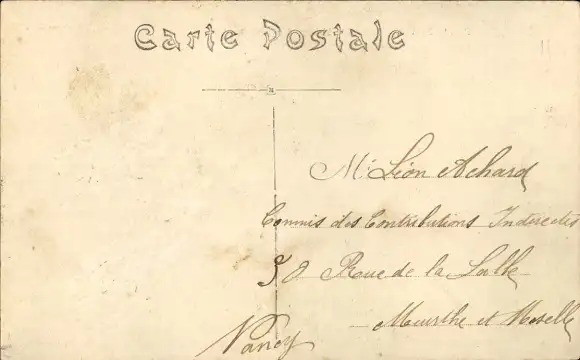 Carte Postale
Mr Léon Achard
Commis des Contributions Indirectes
58 Rue de la Salle
Nancy
Meurthe et Moselle